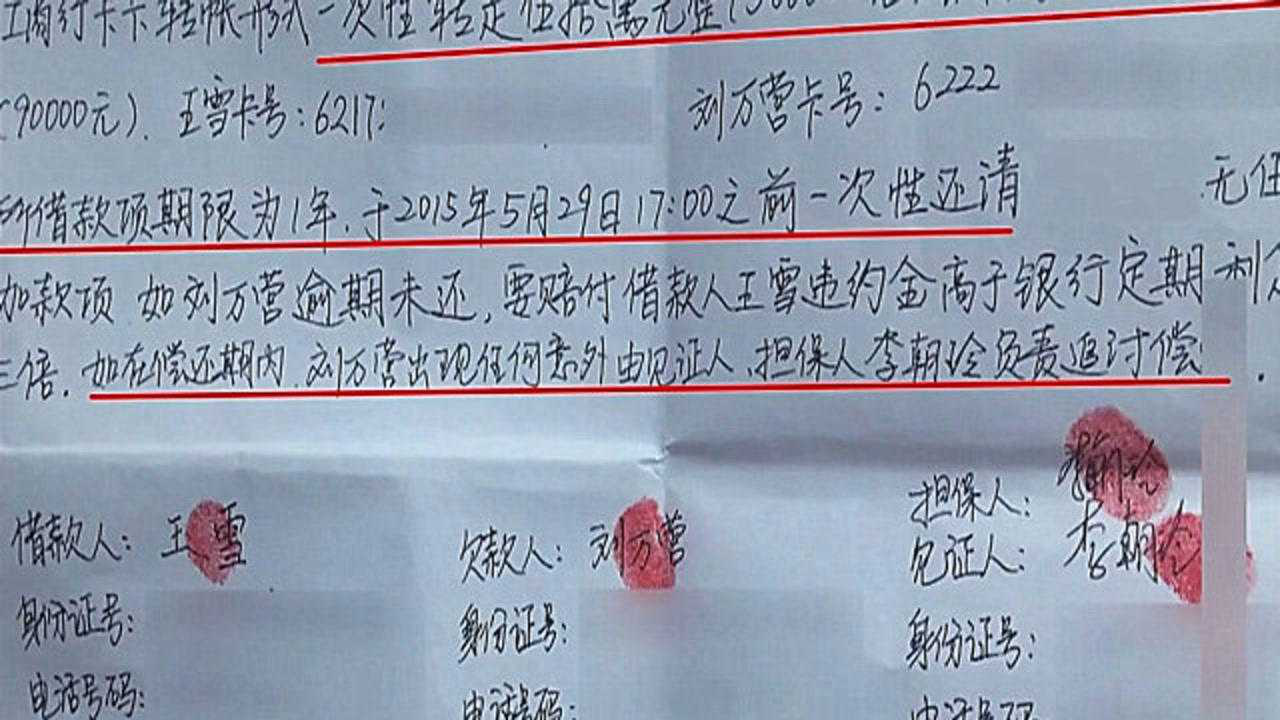 工商行卡卡转帐形式一次性转走伍拾万元整
(90000元). 王雪卡号:6217: 刘万营卡号: 6222
所借款项期限为1年.于2015年5月29日17:00之前一次性还请 无任
加款项 如刘万营逾期未还,要赔付借款人王雪违约金高于银行定期利
三倍. 如在偿还期内.刘万营出现任何意外由见证人、担保人李朝玲负责追讨偿
担保人: 李朝玲
借款人: 王雪 欠款人: 刘万营 见证人: 李朝玲
身份证号: 身份证号: 身份证号:
电话号码: 电话号码: 电话号码